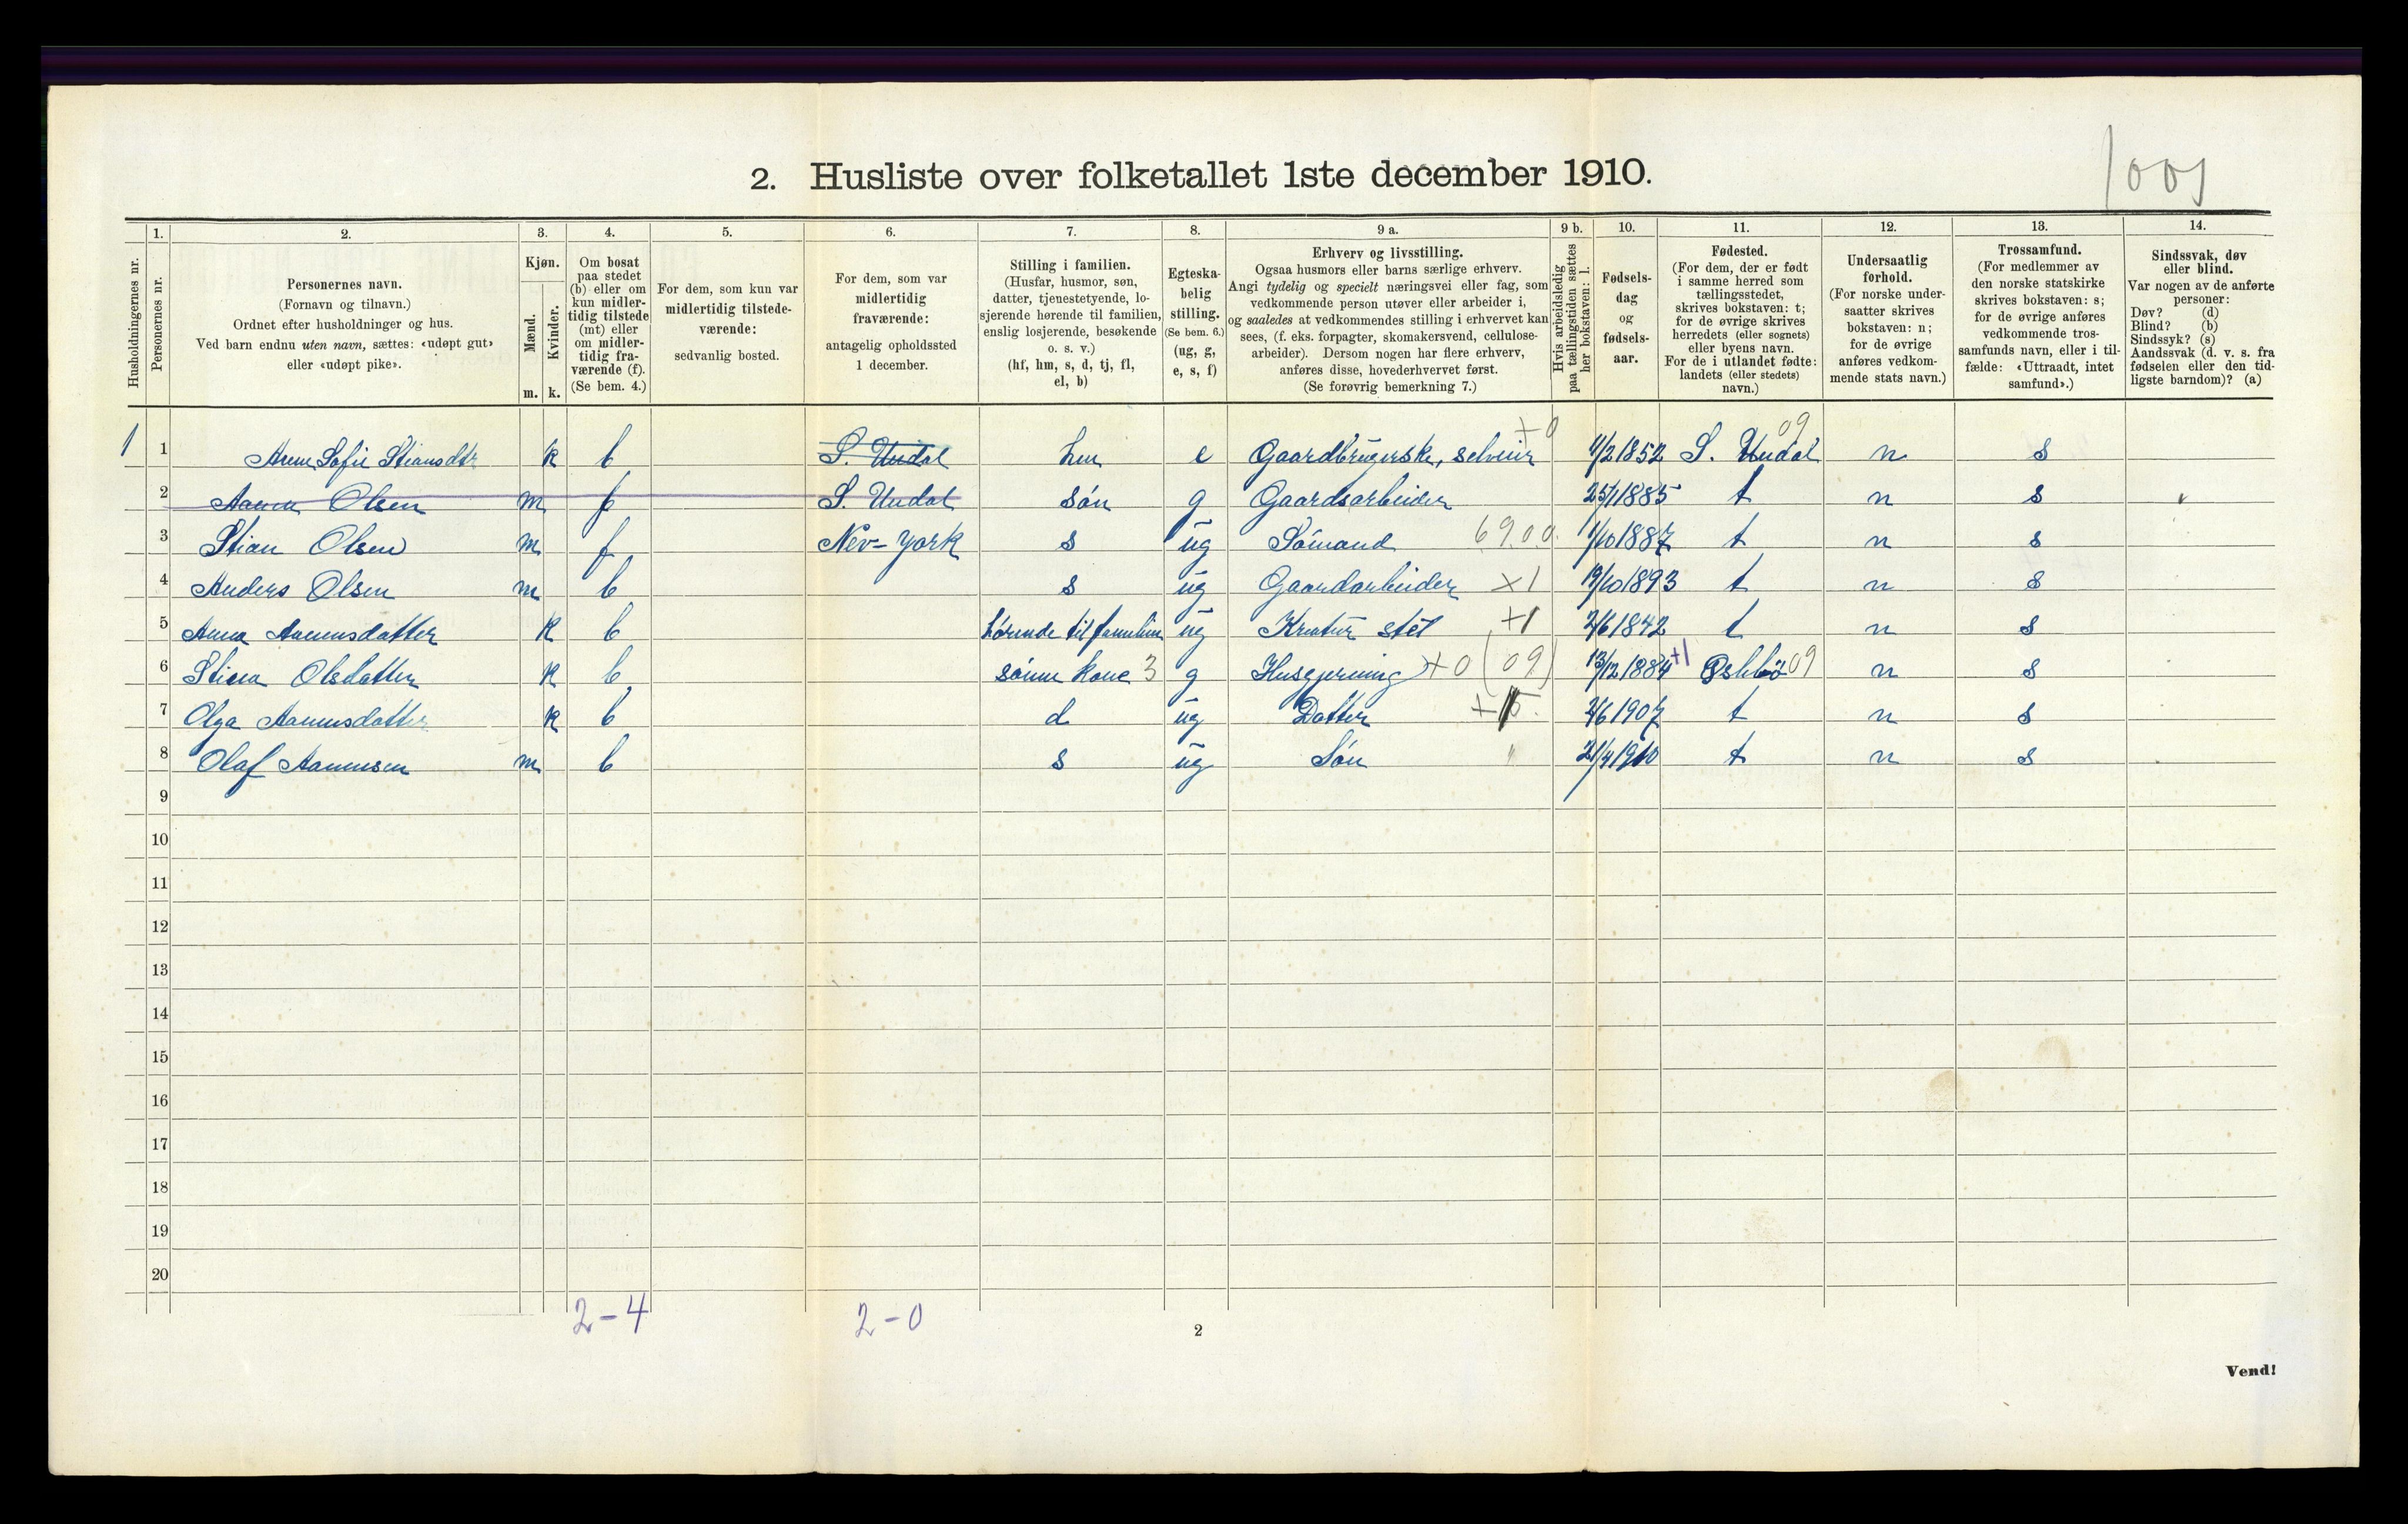 2. Husliste over folketallet 1ste december 1910.
1001
Husholdningernes nr.
1.
Personernes nr.
2.
Personernes navn.
(Fornavn og tilnavn.)
Ordnet efter husholdninger og hus.
Ved barn endnu uten navn, sættes: «udøpt gut»
eller «udøpt pike».
3.
Kjøn.
Mænd.
Kvinder.
m. k.
4.
Om bosat
paa stedet
(b) eller om
kun midler-
tidig tilstede
(mt) eller
om midler-
tidig fra-
værende (f).
(Se bem. 4.)
5.
For dem, som kun var
midlertidig tilstede-
værende:
sedvanlig bosted.
6.
For dem, som var
midlertidig
fraværende:
antagelig opholdssted
1 december.
7.
Stilling i familien.
(Husfar, husmor, søn,
datter, tjenestetyende, lo-
sjerende hørende til familien,
enslig losjerende, besøkende
o. s. v.)
(hf, hm, s, d, tj, fl,
el, b)
8.
Egteska-
belig
stilling.
(Se bem. 6.)
(ug, g,
e, s, f)
9 a.
Erhverv og livsstilling.
Ogsaa husmors eller barns særlige erhverv.
Angi tydelig og specielt næringsvei eller fag, som
vedkommende person utøver eller arbeider i,
og saaledes at vedkommendes stilling i erhvervet kan
sees, (f. eks. forpagter, skomakersvend, cellulose-
arbeider). Dersom nogen har flere erhverv,
anføres disse, hovederhvervet først.
(Se forøvrig bemerkning 7.)
9 b.
Hvis arbeidsledig
paa tællingstiden sættes
her bokstaven: l.
10.
Fødsels-
dag
og
fødsels-
aar.
11.
Fødested.
(For dem, der er født
i samme herred som
tællingsstedet,
skrives bokstaven: t;
for de øvrige skrives
herredets (eller sognets)
eller byens navn.
For de i utlandet fødte:
landets (eller stedets)
navn.)
12.
Undersaatlig
forhold.
(For norske under-
saatter skrives
bokstaven: n;
for de øvrige
anføres vedkom-
mende stats navn.)
13.
Trossamfund.
(For medlemmer av
den norske statskirke
skrives bokstaven: s;
for de øvrige anføres
vedkommende tros-
samfunds navn, eller i til-
fælde: «Uttraadt, intet
samfund».)
14.
Sindssvak, døv
eller blind.
Var nogen av de anførte
personer:
Døv? (d)
Blind? (b)
Sindssyk? (s)
Aandssvak (d. v. s. fra
fødselen eller den tid-
ligste barndom)? (a)
+0 09
1 1 Anne Sofie Stiansdtr k b S. Undal hm e Gaardbrugerske, selveier 1/2 1852 S. Undal n s
2 Aanen Olsen m f S. Undal søn g Gaardsarbeider 25/1 1885 t n s
3 Stian Olsen m f Nev-York s ug Sømand 6900. 1/10 1887 t n s
4 Anders Olsen m b s ug Gaardarbeider x1 19/10 1893 t n s
5 Anna Aanensdatter k b hørende til familien ug Kreatur stel +1 2/6 1842 t n s
6 Stina Olsdatter k b sønne kone 3 g Husgjerning +0 (09) 13/12 1884 +1 09 n s
7 Olga Aanensdatter k b d ug Datter 2/6 1907 t n s
8 Olaf Aanensen m b s ug Søn " 21/4 1910 t n s
9
10
11
12
13
14
15
16
17
18
19
20
2-4 2-0
2
Vend!